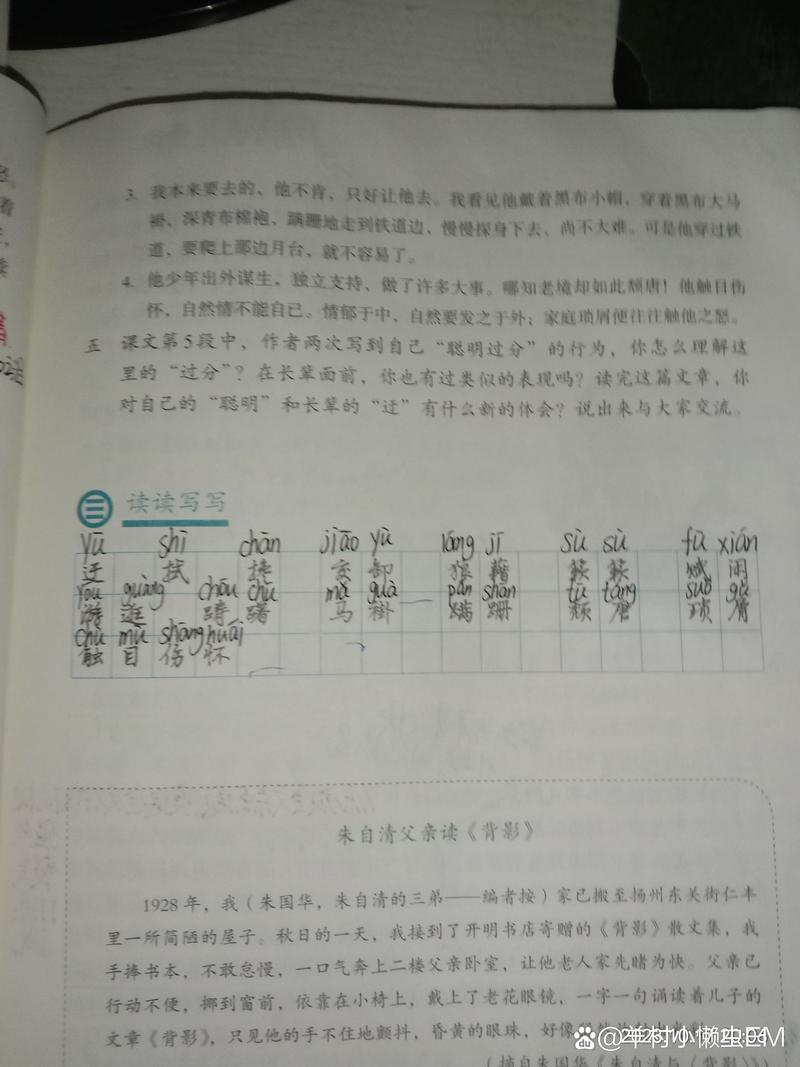 3. 我本来要去的，他不肯，只好让他去。我看见他戴着黑布小帽，穿着黑布大马
褂，深青布棉袍，蹒跚地走到铁道边，慢慢探身下去，尚不大难。可是他穿过铁
道，要爬上那边月台，就不容易了。
4. 他少年出外谋生，独立支持，做了许多大事。哪知老境却如此颓唐！他触目伤
怀，自然情不能自已。情郁于中，自然要发之于外；家庭琐屑便往往触他之怒。
五 课文第5段中，作者两次写到自己“聪明过分”的行为，你怎么理解这
里的“过分”？在长辈面前，你也有过类似的表现吗？读完这篇文章，你
对自己的“聪明”和长辈的“迂”有什么新的体会？说出来与大家交流。
读读写写
yū shī chān jiāo yù láng jī sù sù fù xián
迂 拭 搀 交卸 狼藉 簌簌 赋闲
yóu guàng chóu chú mǎ guà pán shān tú táng suǒ
游逛 踌躇 马褂 蹒跚 颓唐 琐屑
chù mù shāng huái
触目伤怀
朱自清父亲读《背影》
1928年，我（朱国华，朱自清的三弟——编者按）家已搬至扬州东关街仁丰
里一所简陋的屋子。秋日的一天，我接到了开明书店寄赠的《背影》散文集，我
手捧书本，不敢怠慢，一口气奔上二楼父亲卧室，让他老人家先睹为快。父亲已
行动不便，挪到窗前，依靠在小椅上，戴上了老花眼镜，一字一句诵读着儿子的
文章《背影》，只见他的手不住地颤抖，昏黄的眼珠，好像
（摘自朱国华《朱自清与〈背影〉》）
@羊村小懒虫EM